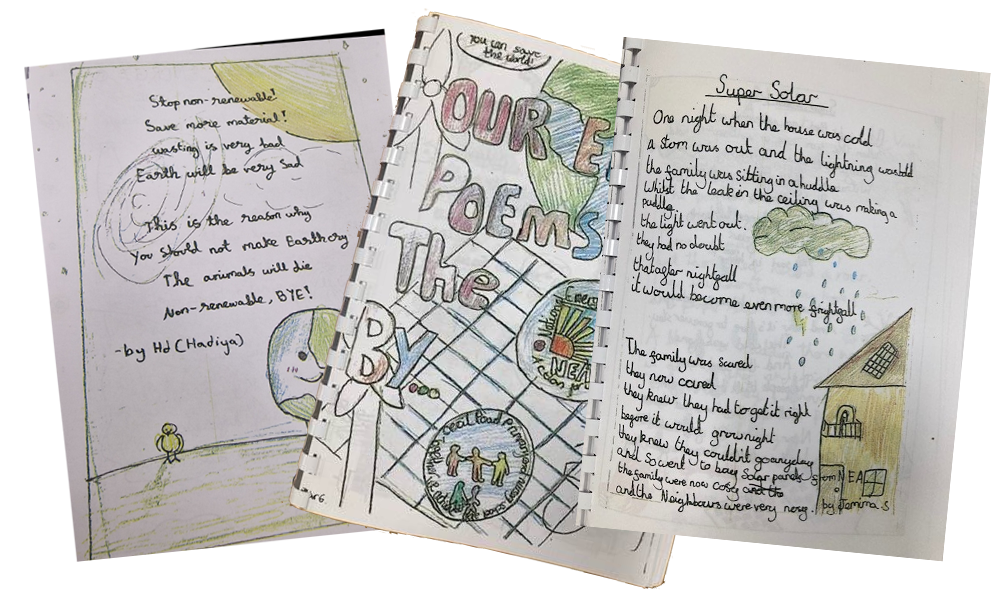 Stop non-renewable!
Save more material!
wasting is very bad
Earth will be very sad
This is the reason why
You should not make Earth cry
The animals will die
Non-renewable, BYE!
-by Hd (Hadiya)
You can save
the world!
OUR E
POEMS
The
By...
NEA
Seal Road Primary
Super Solar
One night when the house was cold
a storm was out and the lightning was bold
the family was sitting in a huddle
whilst the leak in the ceiling was making a
puddle.
the light went out.
they had no doubt
that after nightfall
it would become even more frightfall
The family was scared
they now cared
they knew they had to get it right
before it would grow night
they knew they couldn't go anyday
and so went to buy solar panels from NEA
the family were now cosy and the
and the Neighbours were very nosy.
by Jemma S